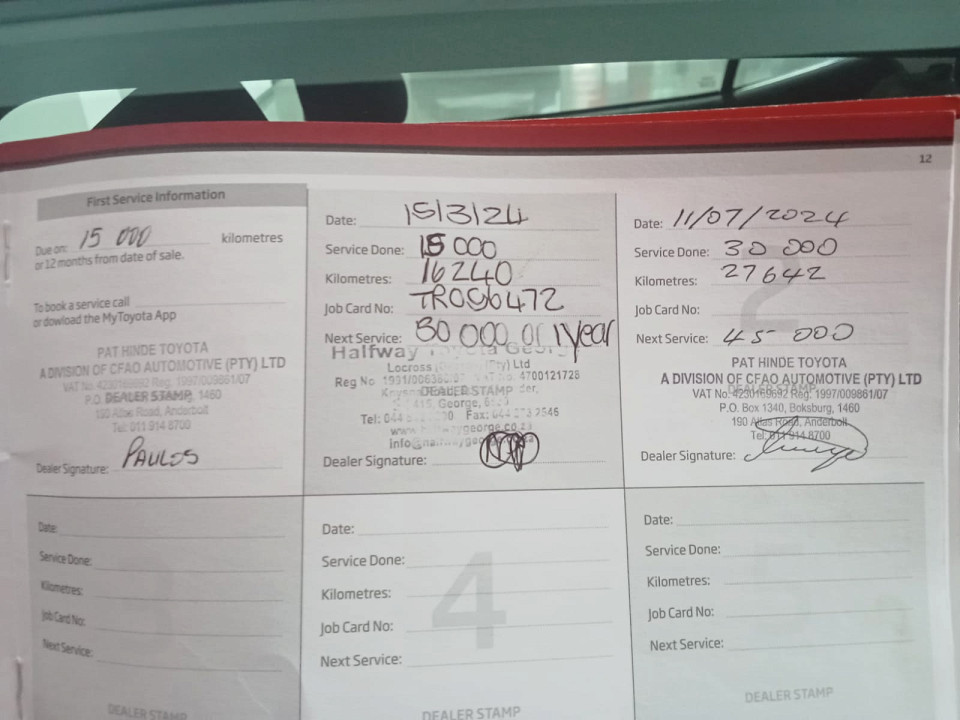 12
First Service Information
Due on: 15 000 kilometres
or 12 months from date of sale.
To book a service call
or dowload the MyToyota App
PAT HINDE TOYOTA
A DIVISION OF CFAO AUTOMOTIVE (PTY) LTD
VAT No. 4230169692 Reg. 1997/009861/07
P.O. DEALER STAMP, 1460
190 Atlas Road, Anderbolt
Tel: 011 914 8700
Dealer Signature: PAULOS
Date: 15/3/24
Service Done: 15 000
Kilometres: 16240
Job Card No:
Next Service: 30 000 or 1 year
Halfway Toyota George
Locross (Pty) Ltd
Reg No 4700121728
DEALER STAMP
George,
Tel: 044 Fax: 2545
Dealer Signature:
Date: 11/07/2024
Service Done: 30 000
Kilometres: 27642
Job Card No:
Next Service: 45 000
PAT HINDE TOYOTA
A DIVISION OF CFAO AUTOMOTIVE (PTY) LTD
DEALER STAMP
VAT No. 4230169692 Reg. 1997/009861/07
P.O. Box 1340, Boksburg, 1460
190 Atlas Road, Anderbolt
Tel: 011 914 8700
Dealer Signature:
Date:
Service Done:
Kilometres:
Job Card No:
Next Service:
DEALER STAMP
4
Date:
Service Done:
Kilometres:
Job Card No:
Next Service:
DEALER STAMP
Date:
Service Done:
Kilometres:
Job Card No:
Next Service:
DEALER STAMP